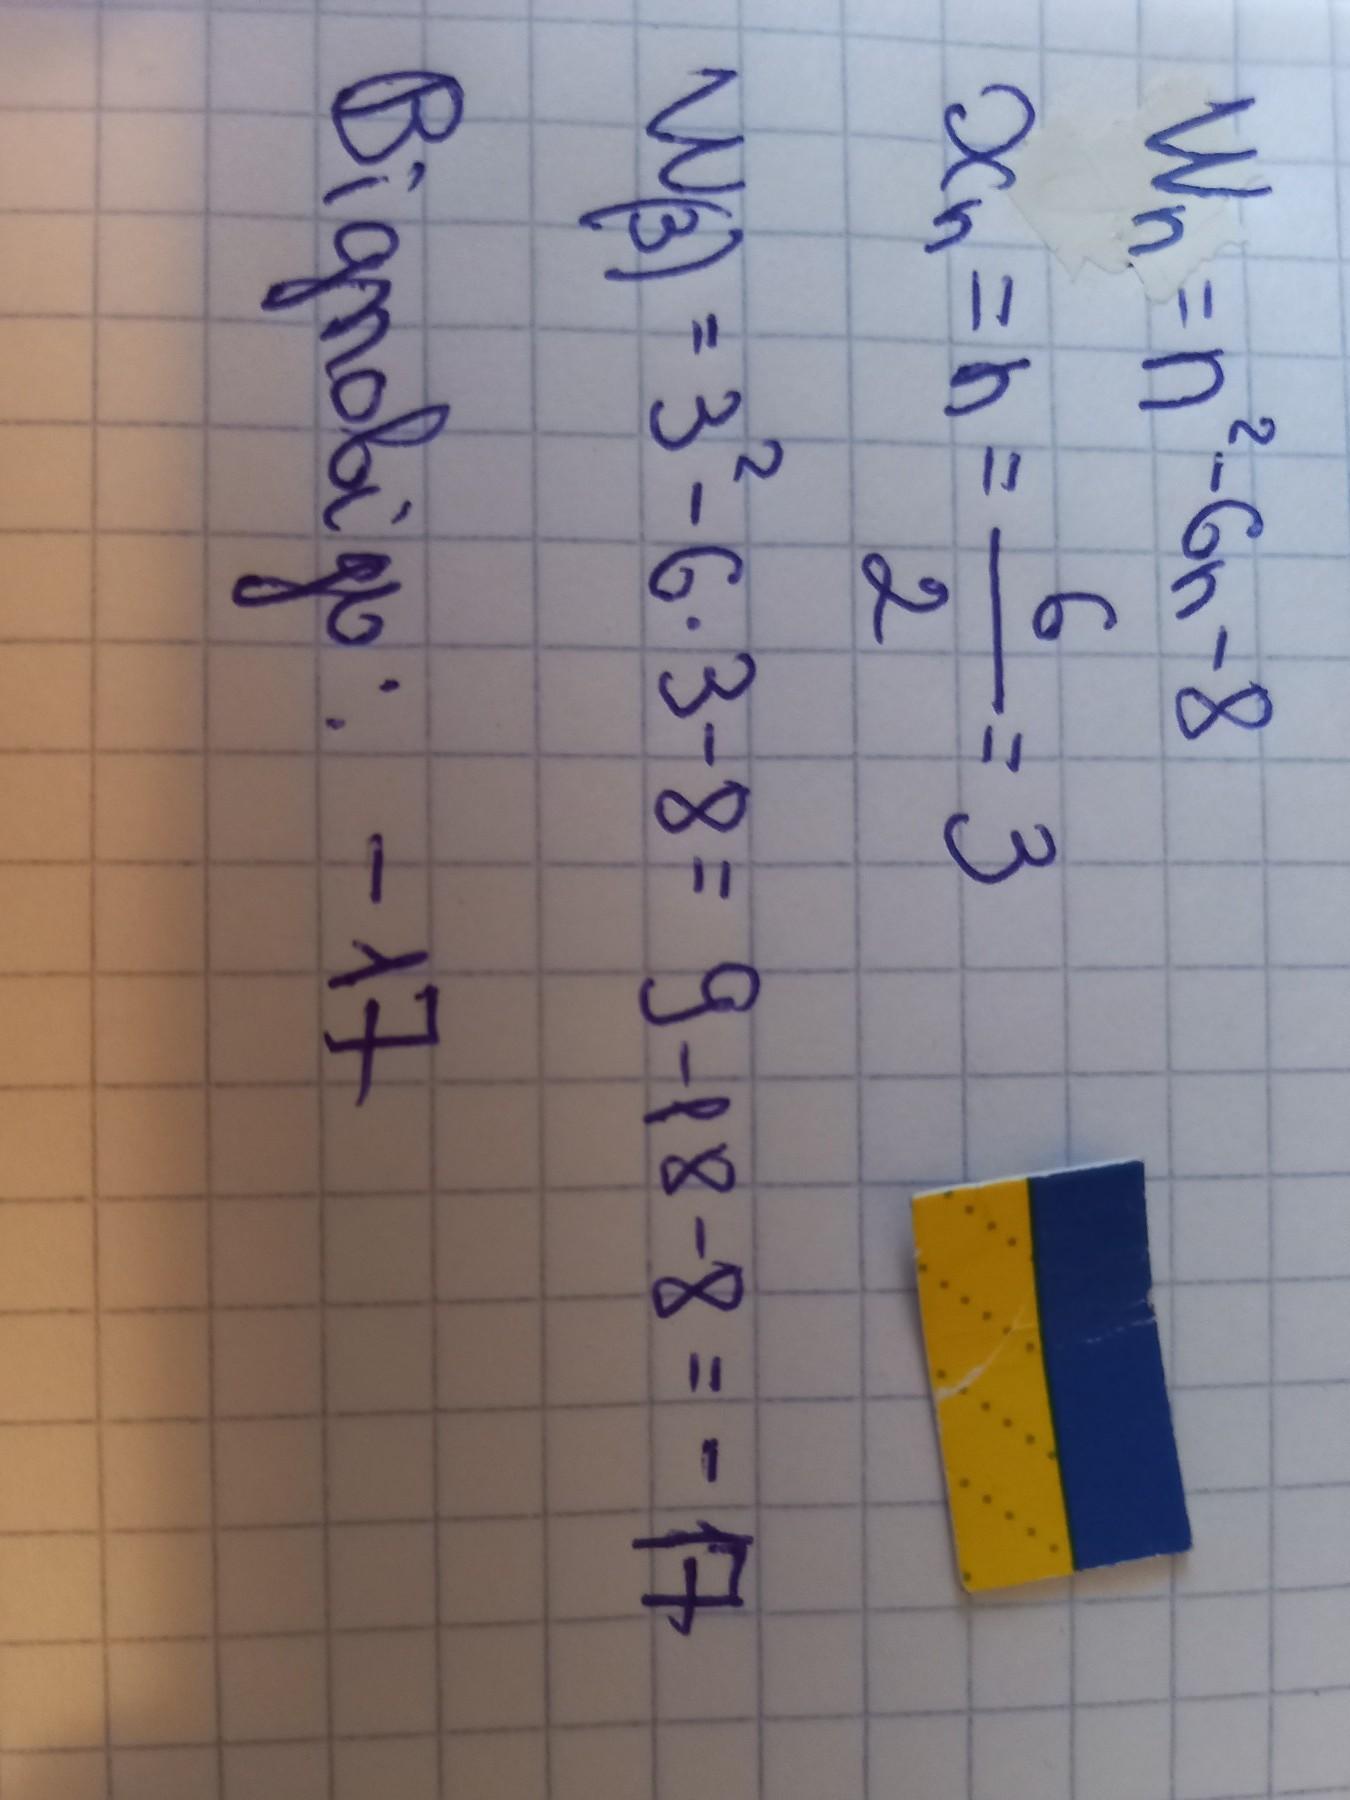 Uₙ = n² - 6n - 8
xₙ = n = 6/2 = 3
U(3) = 3² - 6·3 - 8 = 9 - 18 - 8 = - 17
Відповідь: - 17